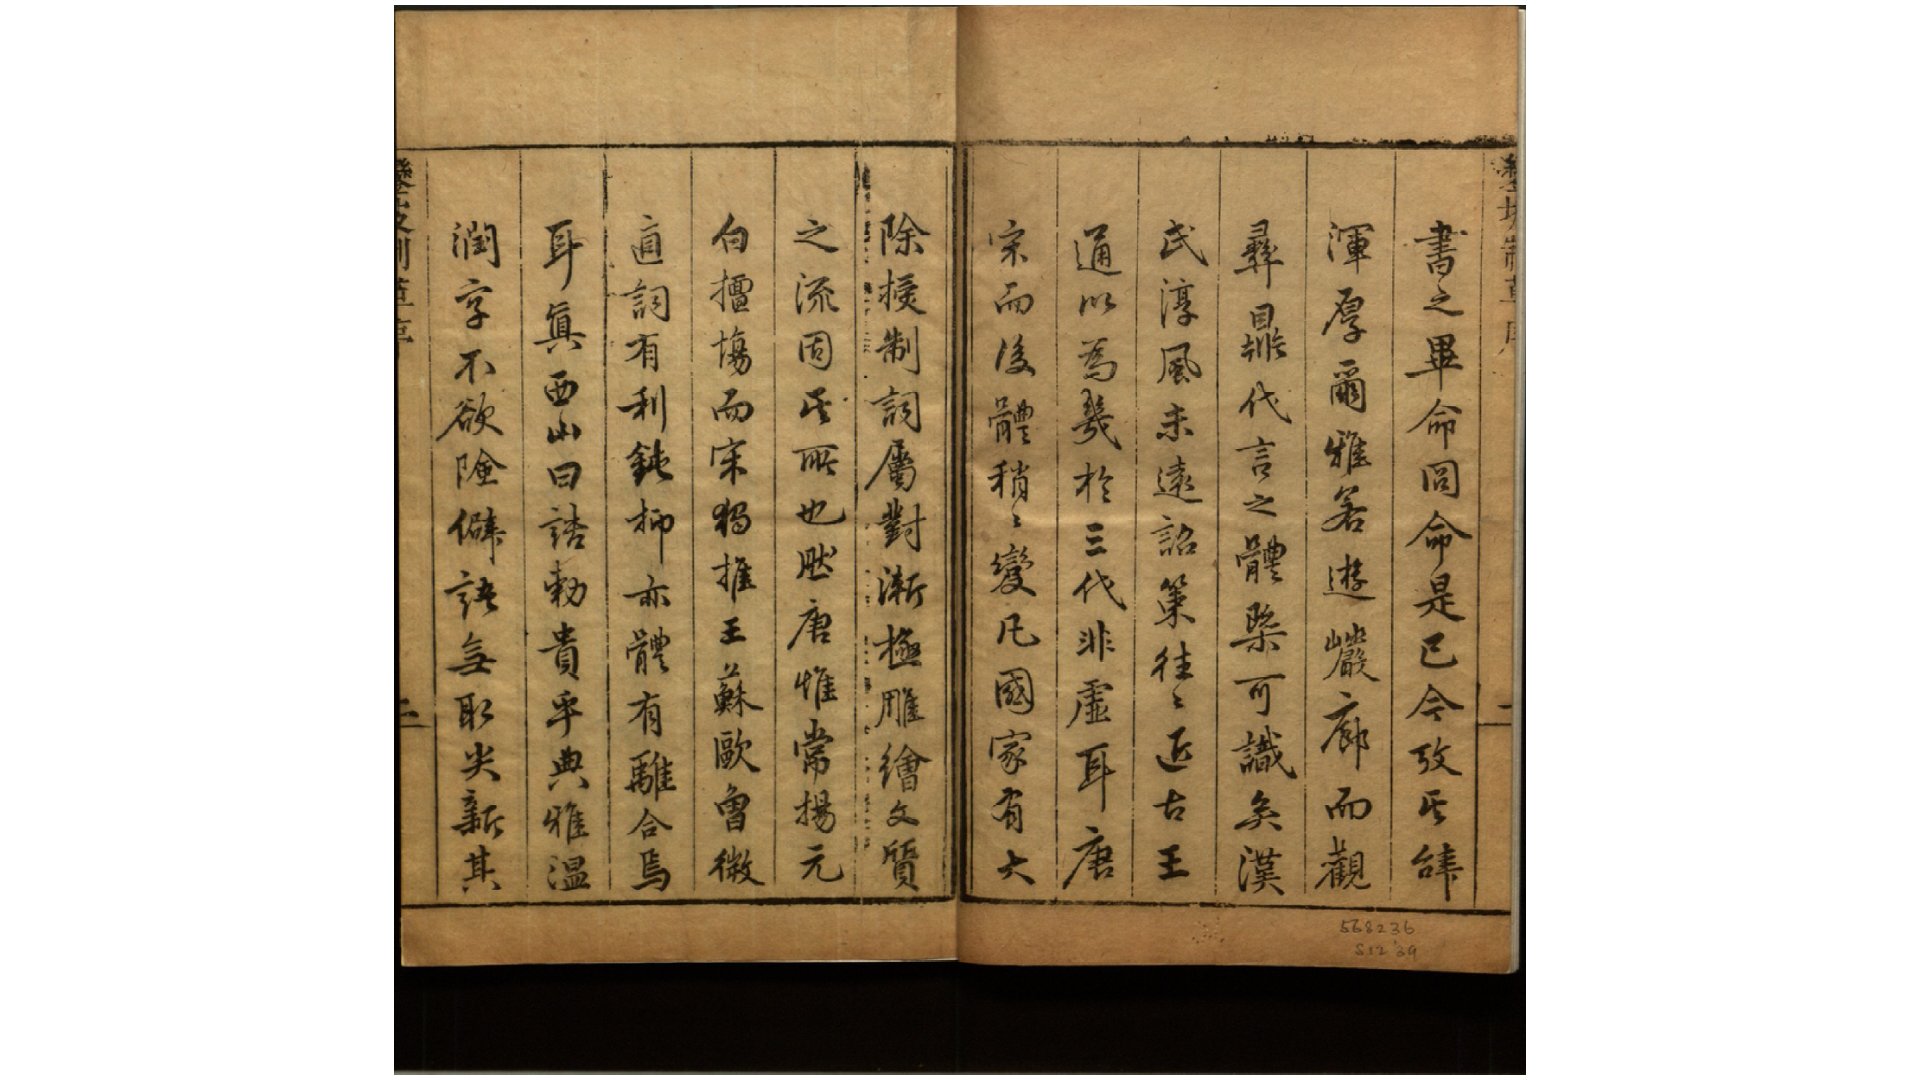 書之畢命冏命是已今攷其辞
渾厚爾雅若遊巗廊而觀
彛鼎代言之體槩可識矣漢
氏淳風未遠詔策往〻近古王
通以為幾於三代非虛耳唐
宋而後體稍〻變凡國家有大
除授制詞屬對漸極雕繪文質
之流固其所也然唐惟常揚元
白擅塲而宋獨推王蘇歐曾微
適詞有利鈍抑亦體有離合焉
耳眞西山曰誥勅貴乎典雅温
潤字不欲險僻語無取尖新其
二
568236
S12 '39